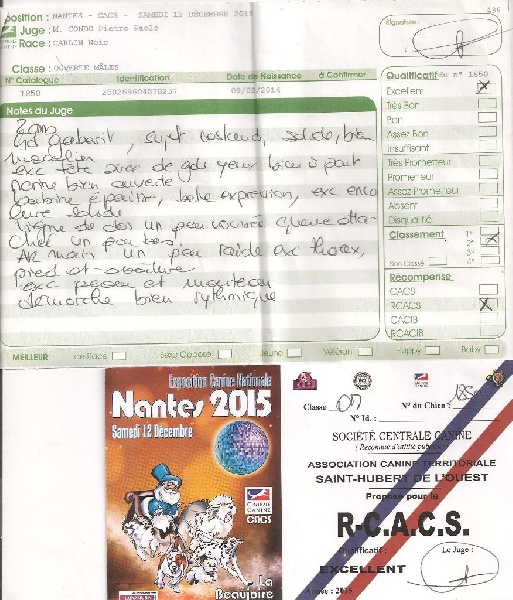 Exposition : NANTES - CACS - SAMEDI 12 DÉCEMBRE 2015
Juge : M. CONDO Pietro Paolo
Race : CARLIN Noir
Classe : OUVERTE MÂLES
N° Catalogue Identification Date de Naissance à Confirmer
1850 09/02/2014
Notes du Juge
2 ans
gd gabarit, sujet costaud, solide, bien
exc tête avec de gds yeux bien à part
bien ouverte
babine épaisse, belle expression, exc enco
lure solide
ligne de dos un peu queue atta-
chée un peu bas
AR main un peu raide exc thorax,
pied et ossature
exc pigment et manteau
démarche bien rythmique
Signature :
Qualificatif du n° 1850
Excellent
Très Bon
Bon
Assez Bon
Insuffisant
Très Prometteur
Prometteur
Assez Prometteur
Absent
Disqualifié
Classement 1°
2°
3°
Non Classé 4°
Récompense
CACS
RCACS
CACIB
RCACIB
MEILLEUR de Race Sexe Opposé Jeune Vétéran Puppy Baby
Exposition Canine Nationale
Nantes 2015
Samedi 12 Décembre
CENTRALE CANINE
CACS
La
Beaujoire
Classe : N° du Chien :
N° Id. :
SOCIÉTÉ CENTRALE CANINE
(Reconnue d'utilité publique)
ASSOCIATION CANINE TERRITORIALE
SAINT-HUBERT DE L'OUEST
Proposé pour le
R-C.A.C.S.
Qualificatif : Le Juge :
EXCELLENT
Année : 2015